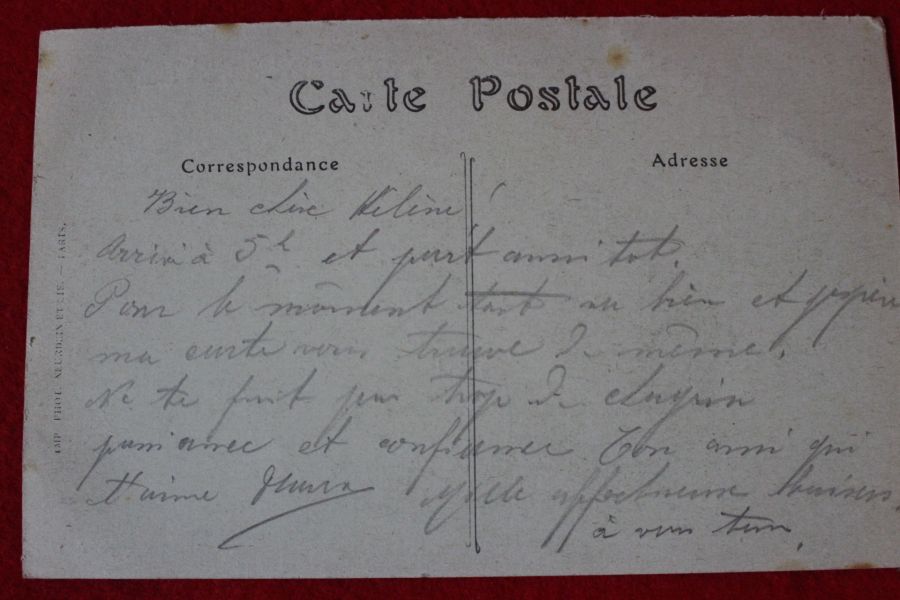 Carte Postale
Correspondance
Adresse
Bien chère Hélène !
Arrivé à 5h et part aussitot.
Pour le môment tout va bien et j'espère
ma carte vous trouve de même.
Ne te fait pas trop de chagrin
passiance et confiance Ton ami qui
t'aime
Mille affectueux baisers
à vous tous.
IMP. PHOT. NEURDEIN ET CIE. — PARIS.